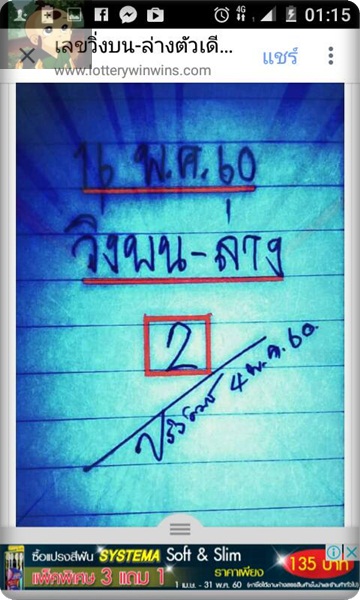 4G 01:15
เลขวิ่งบน-ล่างตัวเดี...
www.lotterywinwins.com
แชร์
16 พ.ค.60
วิ่งบน-ล่าง
2
4 พ.ค.60.
ซื้อแปรงสีฟัน SYSTEMA Soft & Slim
แพ็คพิเศษ 3 แถม 1
ราคาเพียง 135 บาท
1 เม.ย. - 31 พ.ค. 60